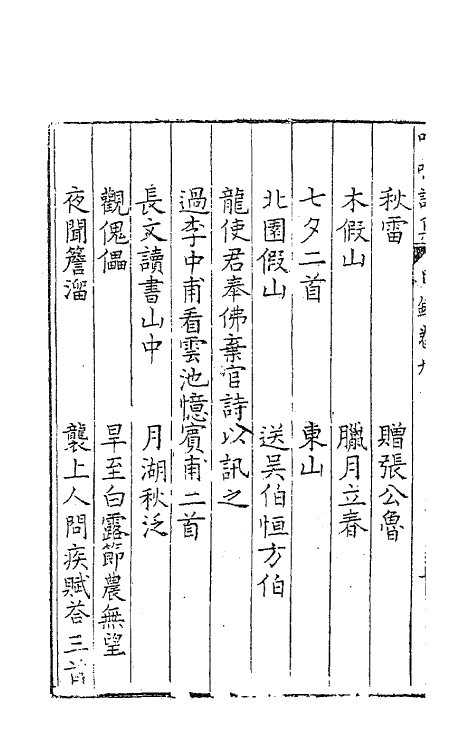 秋雷　贈張公魯
木假山　臘月立春
七夕二首　東山
北園假山　送吳伯恒方伯
龍使君奉佛棄官詩以訊之
過李中甫看雲池憶賓甫二首
長文讀書山中　月湖秋泛
觀傀儡　旱至白露節農無望
夜聞簷溜　襲上人問疾賦荅三首